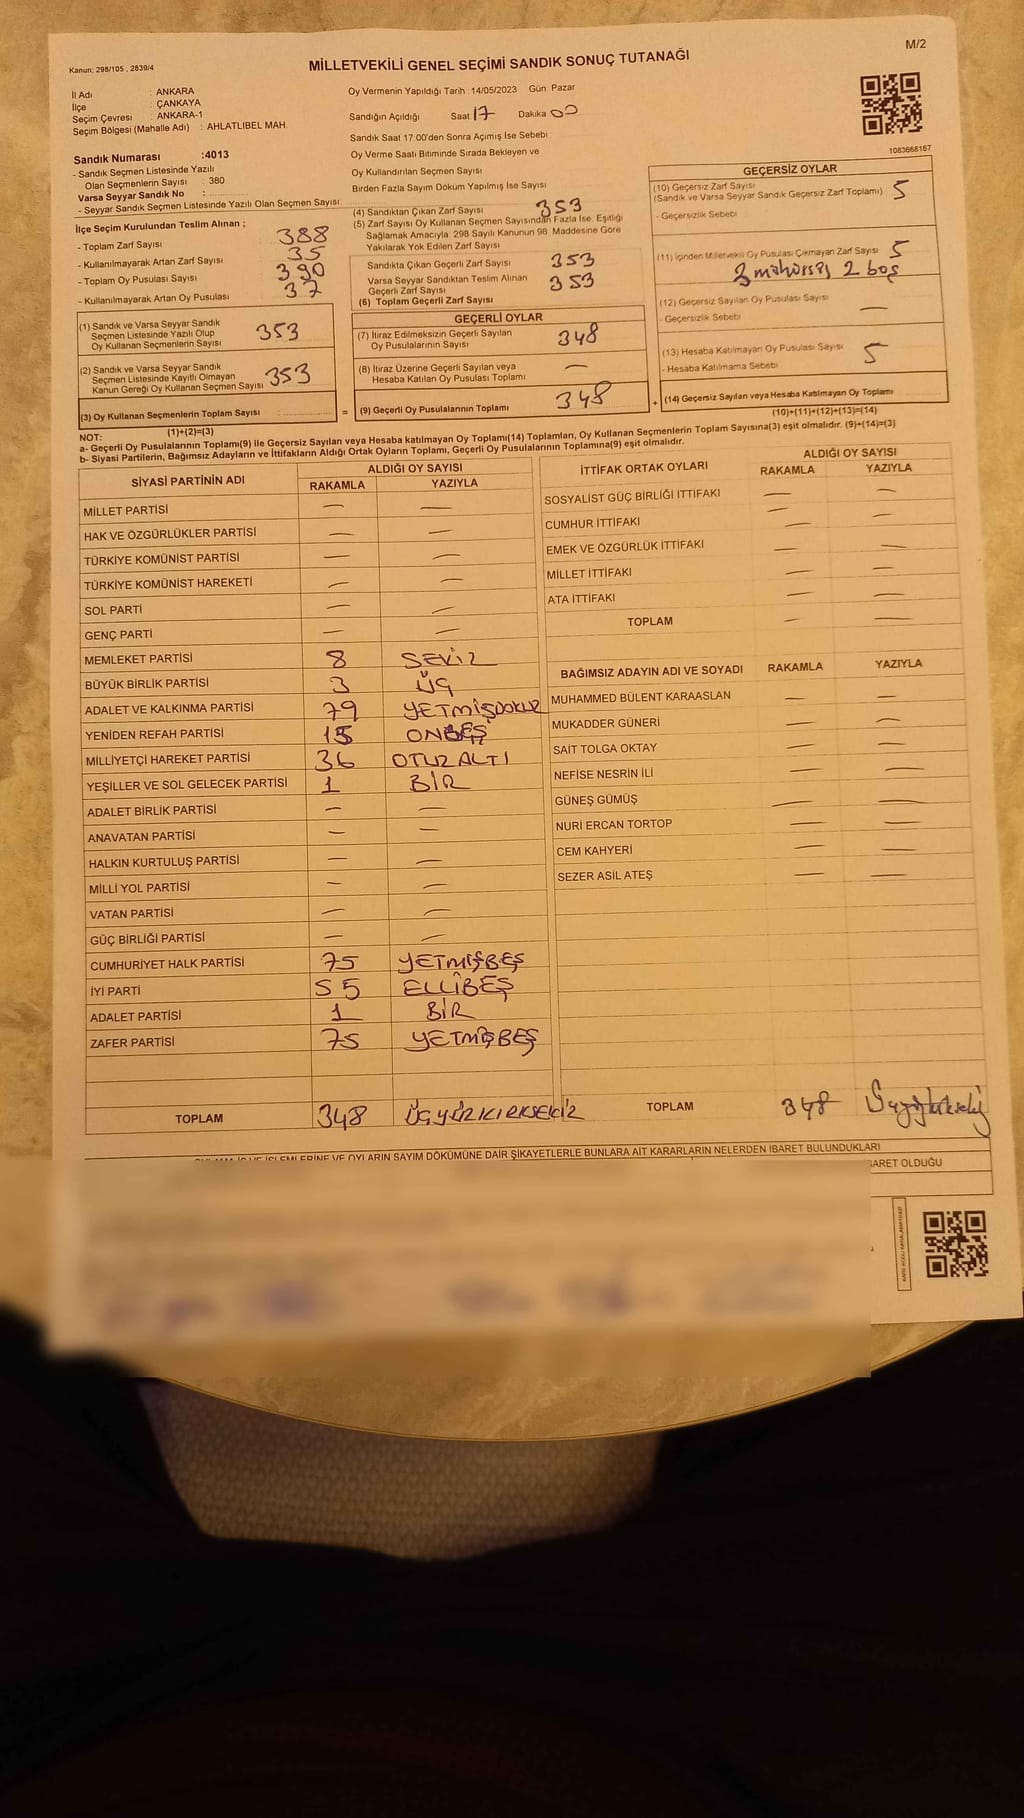 M/2
Kanun: 298/105 , 2839/4
MİLLETVEKİLİ GENEL SEÇİMİ SANDIK SONUÇ TUTANAĞI
İl Adı : ANKARA
İlçe : ÇANKAYA
Seçim Çevresi : ANKARA-1
Seçim Bölgesi (Mahalle Adı) : AHLATLIBEL MAH.
Oy Vermenin Yapıldığı Tarih :14/05/2023 Gün: Pazar
Sandığın Açıldığı Saat 17 Dakika 00
Sandık Saat 17:00'den Sonra Açımış İse Sebebi
Oy Verme Saati Bitiminde Sırada Bekleyen ve
Oy Kullandırılan Seçmen Sayısı
Birden Fazla Sayım Döküm Yapılmış İse Sayısı
1083668167
Sandık Numarası :4013
- Sandık Seçmen Listesinde Yazılı
Olan Seçmenlerin Sayısı : 380
Varsa Seyyar Sandık No :
- Seyyar Sandık Seçmen Listesinde Yazılı Olan Seçmen Sayısı:
İlçe Seçim Kurulundan Teslim Alınan ;
- Toplam Zarf Sayısı 388
- Kullanılmayarak Artan Zarf Sayısı 35
- Toplam Oy Pusulası Sayısı 390
- Kullanılmayarak Artan Oy Pusulası 37
(1) Sandık ve Varsa Seyyar Sandık
Seçmen Listesinde Yazılı Olup
Oy Kullanan Seçmenlerin Sayısı 353
(2) Sandık ve Varsa Seyyar Sandık
Seçmen Listesinde Kayıtlı Olmayan
Kanun Gereği Oy Kullanan Seçmen Sayısı 353
(3) Oy Kullanan Seçmenlerin Toplam Sayısı :
(1)+(2)=(3)
(4) Sandıktan Çıkan Zarf Sayısı 353
(5) Zarf Sayısı Oy Kullanan Seçmen Sayısından Fazla İse, Eşitliği
Sağlamak Amacıyla, 298 Sayılı Kanunun 98. Maddesine Göre
Yakılarak Yok Edilen Zarf Sayısı
Sandıkta Çıkan Geçerli Zarf Sayısı 353
Varsa Seyyar Sandıktan Teslim Alınan
Geçerli Zarf Sayısı 353
(6) Toplam Geçerli Zarf Sayısı
GEÇERLİ OYLAR
(7) İtiraz Edilmeksizin Geçerli Sayılan
Oy Pusulalarının Sayısı 348
(8) İtiraz Üzerine Geçerli Sayılan veya
Hesaba Katılan Oy Pusulası Toplamı —
= (9) Geçerli Oy Pusulalarının Toplamı 348
GEÇERSİZ OYLAR
(10) Geçersiz Zarf Sayısı
(Sandık ve Varsa Seyyar Sandık Geçersiz Zarf Toplamı) 5
- Geçersizlik Sebebi
(11) İçinden Milletvekili Oy Pusulası Çıkmayan Zarf Sayısı 5
3 mühürsüz 2 boş
(12) Geçersiz Sayılan Oy Pusulası Sayısı
- Geçersizlik Sebebi —
(13) Hesaba Katılmayan Oy Pusulası Sayısı 5
- Hesaba Katılmama Sebebi
+ (14) Geçersiz Sayılan veya Hesaba Katılmayan Oy Toplamı
(10)+(11)+(12)+(13)=(14)
NOT:
a- Geçerli Oy Pusulalarının Toplamı(9) ile Geçersiz Sayılan veya Hesaba katılmayan Oy Toplamı(14) Toplamları, Oy Kullanan Seçmenlerin Toplam Sayısına(3) eşit olmalıdır. (9)+(14)=(3)
b- Siyasi Partilerin, Bağımsız Adayların ve İttifakların Aldığı Ortak Oyların Toplamı, Geçerli Oy Pusulalarının Toplamına(9) eşit olmalıdır.
SİYASİ PARTİNİN ADI ALDIĞI OY SAYISI
RAKAMLA YAZIYLA
MİLLET PARTİSİ — —
HAK VE ÖZGÜRLÜKLER PARTİSİ — —
TÜRKİYE KOMÜNİST PARTİSİ — —
TÜRKİYE KOMÜNİST HAREKETİ — —
SOL PARTİ — —
GENÇ PARTİ — —
MEMLEKET PARTİSİ 8 SEKİZ
BÜYÜK BİRLİK PARTİSİ 3 ÜÇ
ADALET VE KALKINMA PARTİSİ 79 YETMİŞDOKUZ
YENİDEN REFAH PARTİSİ 15 ONBEŞ
MİLLİYETÇİ HAREKET PARTİSİ 36 OTUZALTI
YEŞİLLER VE SOL GELECEK PARTİSİ 1 BİR
ADALET BİRLİK PARTİSİ — —
ANAVATAN PARTİSİ — —
HALKIN KURTULUŞ PARTİSİ — —
MİLLİ YOL PARTİSİ — —
VATAN PARTİSİ — —
GÜÇ BİRLİĞİ PARTİSİ — —
CUMHURİYET HALK PARTİSİ 75 YETMİŞBEŞ
İYİ PARTİ 55 ELLİBEŞ
ADALET PARTİSİ 1 BİR
ZAFER PARTİSİ 75 YETMİŞBEŞ
TOPLAM 348 ÜÇYÜZKIRKSEKİZ
İTTİFAK ORTAK OYLARI ALDIĞI OY SAYISI
RAKAMLA YAZIYLA
SOSYALİST GÜÇ BİRLİĞİ İTTİFAKI — —
CUMHUR İTTİFAKI — —
EMEK VE ÖZGÜRLÜK İTTİFAKI — —
MİLLET İTTİFAKI — —
ATA İTTİFAKI — —
TOPLAM — —
BAĞIMSIZ ADAYIN ADI VE SOYADI RAKAMLA YAZIYLA
MUHAMMED BÜLENT KARAASLAN — —
MUKADDER GÜNERİ — —
SAİT TOLGA OKTAY — —
NEFİSE NESRİN İLİ — —
GÜNEŞ GÜMÜŞ — —
NURİ ERCAN TORTOP — —
CEM KAHYERİ — —
SEZER ASİL ATEŞ — —
TOPLAM 348 Üçyüzkırksekiz
OYLARIN SAYIM DÖKÜMÜNE DAİR ŞİKAYETLERLE BUNLARA AİT KARARLARIN NELERDEN İBARET BULUNDUKLARI
OLDUĞU